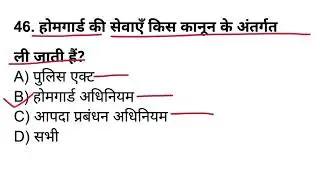 46. होमगार्ड की सेवाएँ किस कानून के अंतर्गत
ली जाती हैं?
A) पुलिस एक्ट
B) होमगार्ड अधिनियम
C) आपदा प्रबंधन अधिनियम
D) सभी